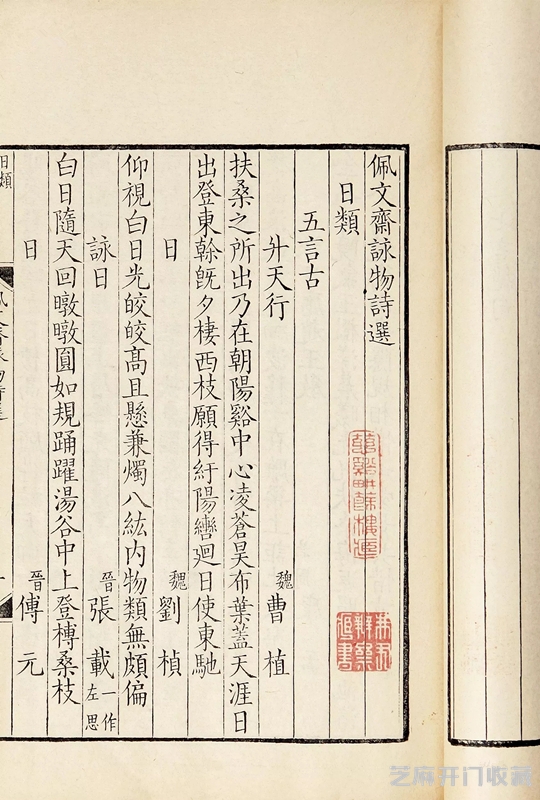 佩文齋詠物詩選
日類
五言古
升天行
魏曹植
扶桑之所出乃在朝陽谿中心凌蒼昊布葉蓋天涯日
出登東榦旣夕棲西枝願得紆陽轡廻日使東馳
日
魏劉楨
仰視白日光皎皎高且懸兼燭八紘内物類無頗偏
詠日
晉張載一作左思
白日隨天回暾暾圓如規踊躍湯谷中上登榑桑枝
日
晉傅元
日類
芝麻开门收藏